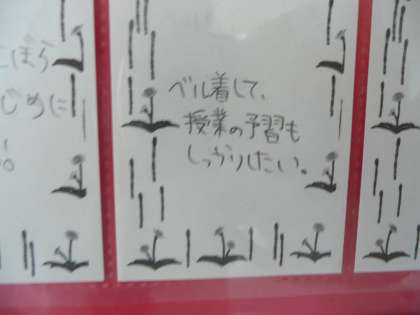 ベル着して、
授業の予習も
しっかりしたい。
じめに